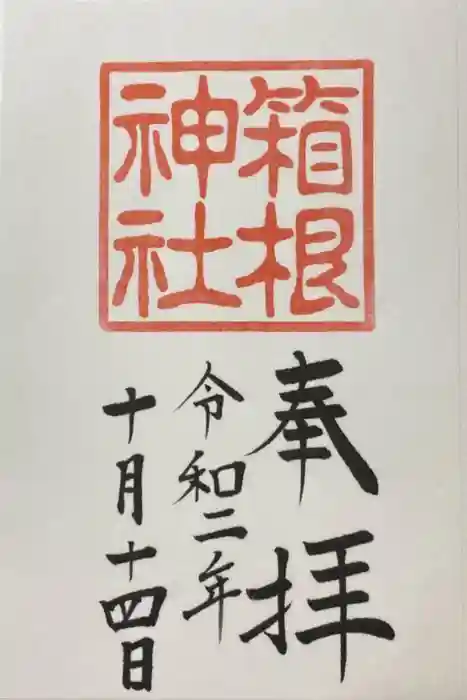 箱根
神社
奉拝
令和二年
十月十四日